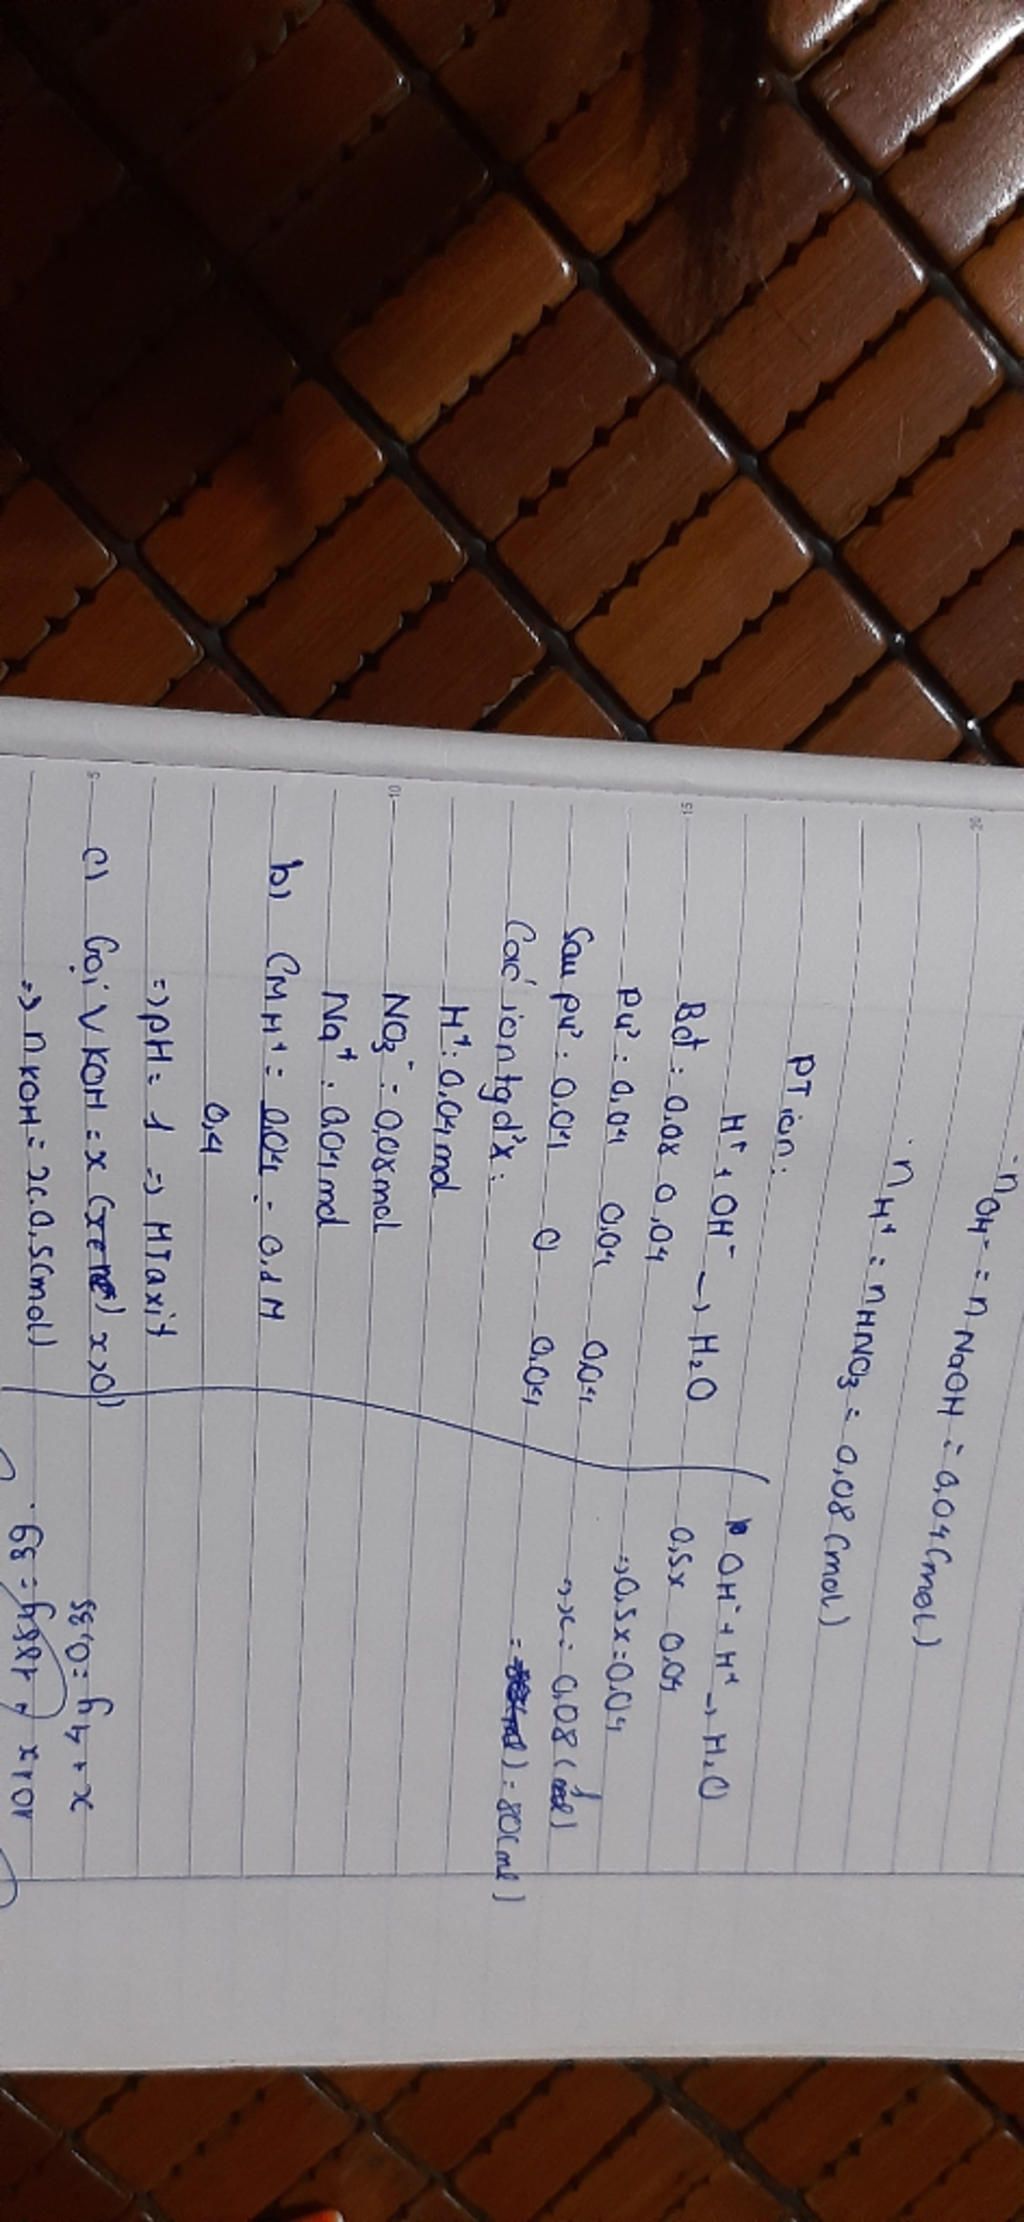 - nOH⁻ = nNaOH = 0,04 (mol)
. nH⁺ = nHNO₃ = 0,08 (mol)
PT ion:
H⁺ + OH⁻ → H₂O
Bđ: 0,08 0,04
Pứ: 0,04 0,04 0,04
Sau pứ: 0,04 0 0,04
Các ion tg d²X:
H⁺: 0,04 mol
NO₃⁻: 0,08 mol
Na⁺: 0,04 mol
b) CM H⁺ = 0,04 = 0,1M
0,4
=> pH = 1 => MT axit
c) Gọi V KOH = x ( x>0)
=> nKOH = x.0,5 (mol)
OH⁻ + H⁺ → H₂O
0,5x 0,04
=> 0,5x = 0,04
=> x = 0,08 (l)
= 80 (ml)
x + 4y = 0,35
101x + 188y = 69.